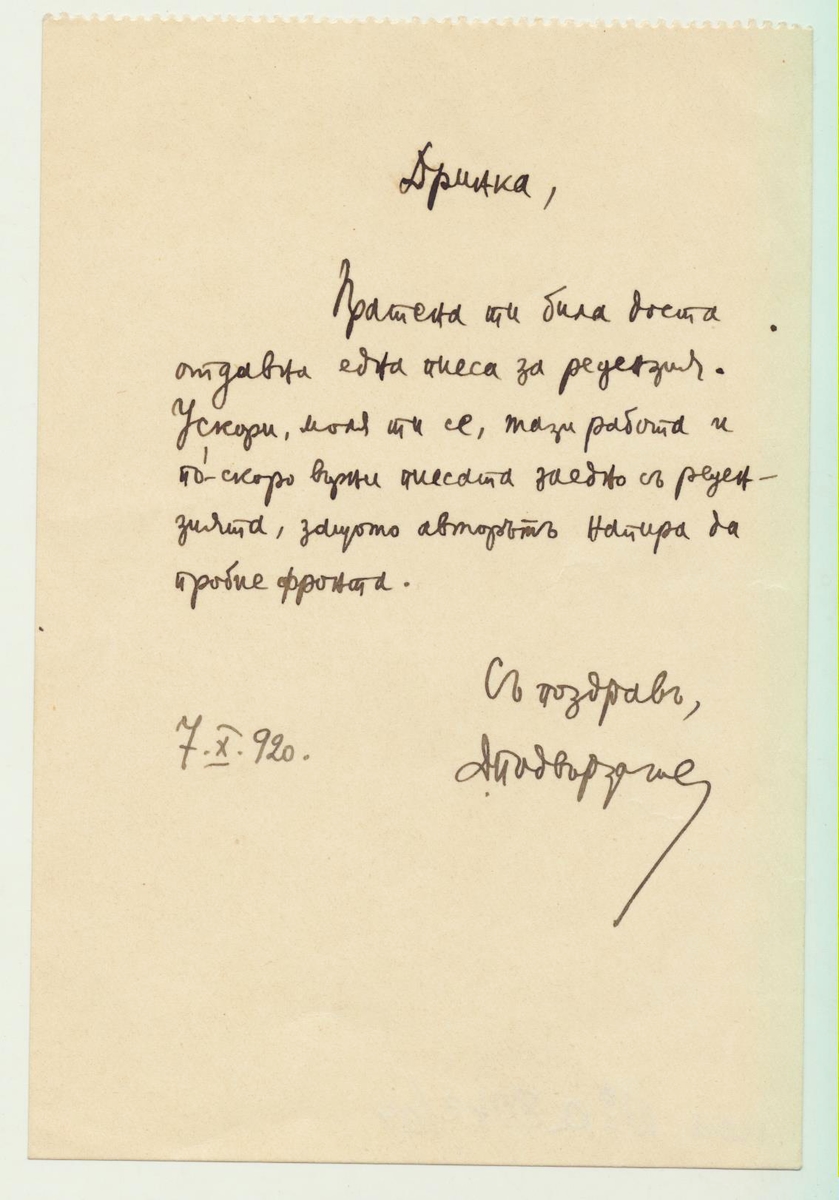 Дринка,
Пратена ти била доста
отдавна една пиеса за рецензия.
Ускори, моля ти се, тази работа и
по́-скоро върни пиесата заедно съ рецен-
зията, защото авторътъ напира да
пробие фронта.
Съ поздравъ,
7.X.920.
Д.Подвързачов